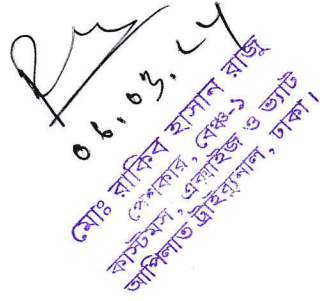 ০৬.০৩.২৫
মোঃ রাকিব হাসান রাজু
পেশকার, বেঞ্চ-১
কাস্টমস, এক্সাইজ ও ভ্যাট
আপিলাত ট্রাইব্যুনাল, ঢাকা।